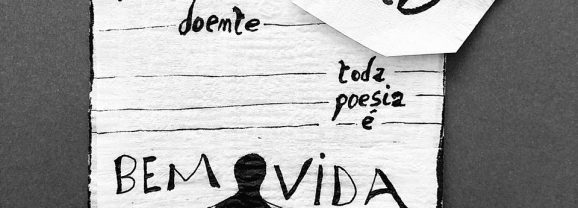 doente
toda
poesia
é
BEM VIDA